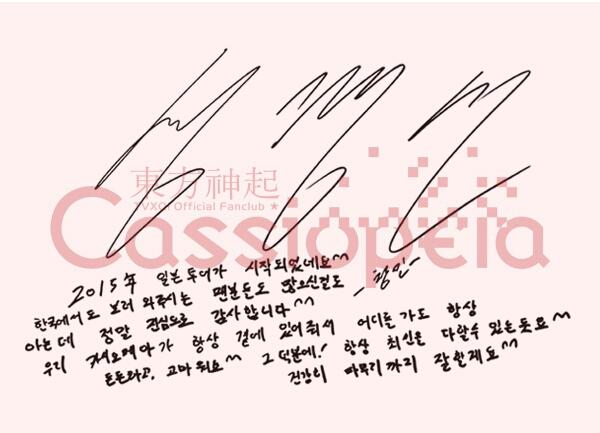 東方神起
TVXQ! Official Fanclub ★
Cassiopeia
2015年 일본 투어가 시작되었네요^^
한국에서도 보러 와주시는 팬분들도 많으신걸로
아는데 정말 진심으로 감사합니다^^
- 창민 -
우리 카시오페아가 항상 곁에 있어줘서 어디를 가도 항상
든든하고, 고마워요^^ 그 덕분에! 항상 최선을 다할수 있는듯요^^
건강히 마무리까지 잘할게요^^